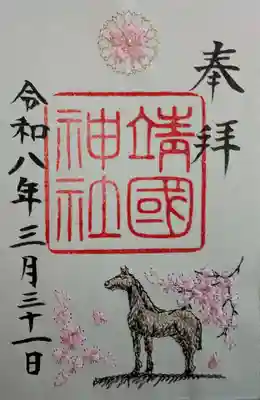 奉拝
靖國
神社
令和八年三月三十一日